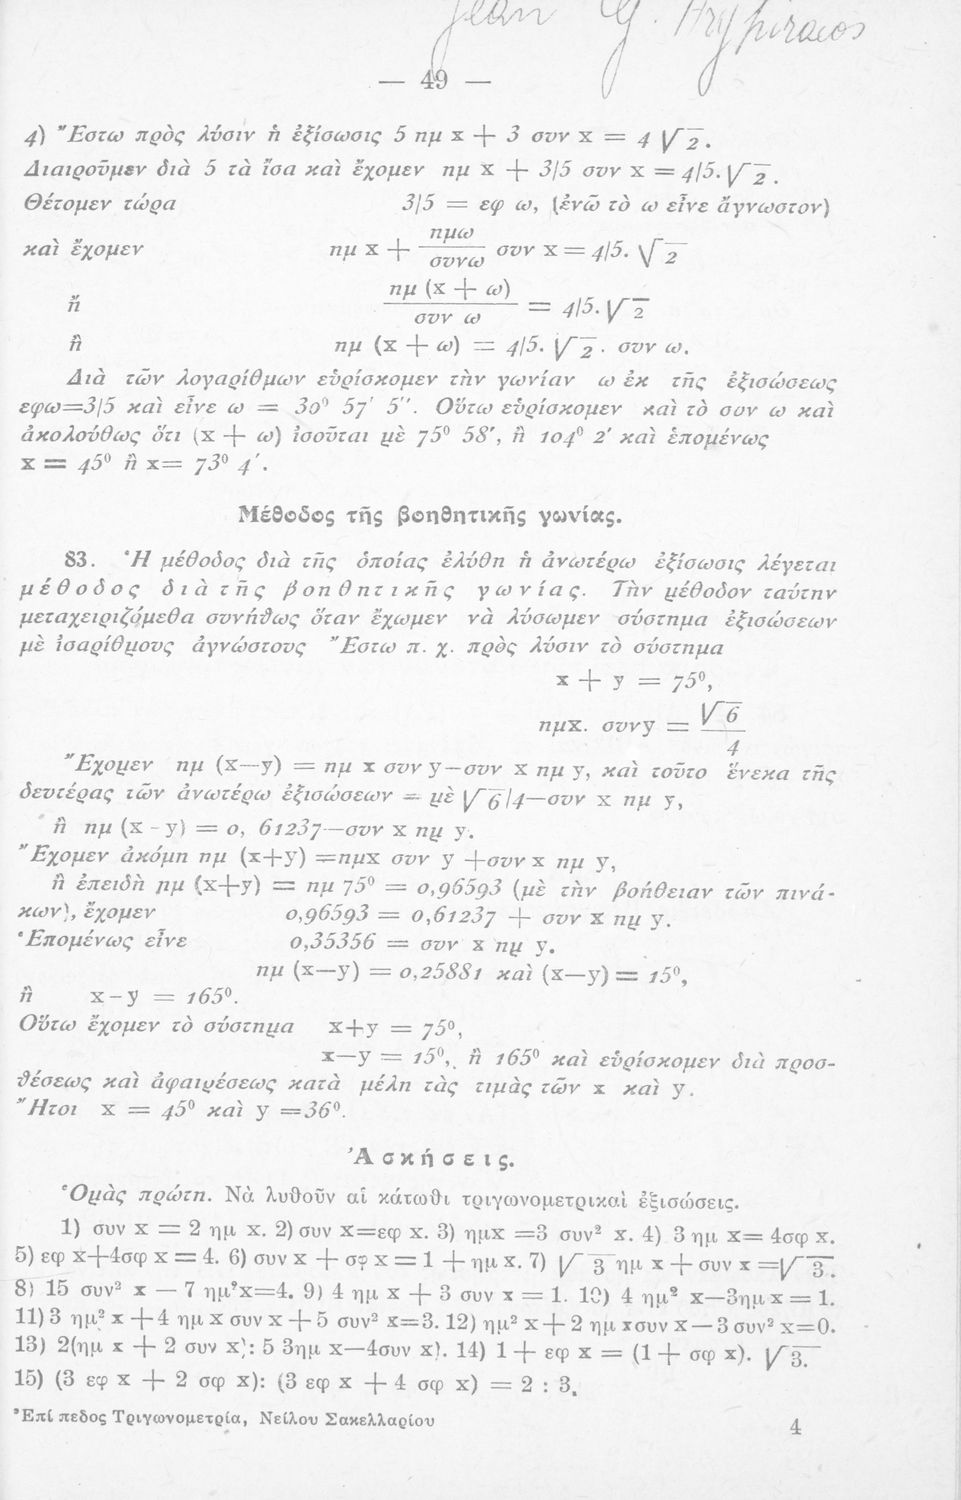 Jean G.
— 49 —
4) Ἔστω πρὸς λύσιν ἡ ἐξίσωσις 5 ημ x + 3 συν x = 4 √2.
Διαιροῦμεν διὰ 5 τὰ ἴσα καὶ ἔχομεν ημ x + 3/5 συν x = 4/5. √2.
Θέτομεν τώρα 3/5 = εφ ω, (ἐνῶ τὸ ω εἶνε ἄγνωστον)
καὶ ἔχομεν ημ x + ημω/συνω συν x = 4/5. √2
ἤ ημ (x + ω)/συν ω = 4/5. √2
ἢ ημ (x + ω) = 4/5. √2 . συν ω.
Διὰ τῶν λογαρίθμων εὑρίσκομεν τὴν γωνίαν ω ἐκ τῆς ἐξισώσεως
εφω=3/5 καὶ εἶνε ω = 30⁰ 57' 5''. Οὕτω εὑρίσκομεν καὶ τὸ συν ω καὶ
ἀκολούθως ὅτι (x + ω) ἰσοῦται μὲ 75⁰ 58', ἢ 104⁰ 2' καὶ ἑπομένως
x = 45⁰ ἢ x= 73⁰ 4'.
Μέθοδος τῆς βοηθητικῆς γωνίας.
83. Ἡ μέθοδος διὰ τῆς ὁποίας ἐλύθη ἡ ἀνωτέρω ἐξίσωσις λέγεται
μέθοδος διὰ τῆς βοηθητικῆς γωνίας. Τὴν μέθοδον ταύτην
μεταχειριζόμεθα συνήθως ὅταν ἔχωμεν νὰ λύσωμεν σύστημα ἐξισώσεων
μὲ ἰσαρίθμους ἀγνώστους Ἔστω π. χ. πρὸς λύσιν τὸ σύστημα
x + y = 75⁰,
ημx. συνy = √6/4
Ἔχομεν ημ (x—y) = ημ x συν y—συν x ημ y, καὶ τοῦτο ἕνεκα τῆς
δευτέρας τῶν ἀνωτέρω ἐξισώσεων = μὲ √6/4—συν x ημ y,
ἢ ημ (x - y) = 0, 61237—συν x ημ y.
Ἔχομεν ἀκόμη ημ (x+y) =ημx συν y +συν x ημ y,
ἢ ἐπειδὴ ημ (x+y) = ημ 75⁰ = 0,96593 (μὲ τὴν βοήθειαν τῶν πινά-
κων), ἔχομεν 0,96593 = 0,61237 + συν x ημ y.
Ἑπομένως εἶνε 0,35356 = συν x ημ y.
ημ (x—y) = 0,25881 καὶ (x—y) = 15⁰,
ἢ x-y = 165⁰.
Οὕτω ἔχομεν τὸ σύστημα x+y = 75⁰,
x—y = 15⁰, ἢ 165⁰ καὶ εὑρίσκομεν διὰ προσ-
θέσεως καὶ ἀφαιρέσεως κατὰ μέλη τὰς τιμὰς τῶν x καὶ y.
Ἤτοι x = 45⁰ καὶ y =36⁰.
Ἀσκήσεις.
Ὁμὰς πρώτη. Νὰ λυθοῦν αἱ κάτωθι τριγωνομετρικαὶ ἐξισώσεις.
1) συν x = 2 ημ x. 2) συν x=εφ x. 3) ημx =3 συν² x. 4) 3 ημ x= 4σφ x.
5) εφ x+4σφ x = 4. 6) συν x + σφ x = 1 + ημ x. 7) √3 ημ x + συν x =√3.
8) 15 συν² x — 7 ημ²x=4. 9) 4 ημ x + 3 συν x = 1. 10) 4 ημ² x—3ημ x = 1.
11) 3 ημ² x + 4 ημ x συν x + 5 συν² x=3. 12) ημ² x + 2 ημ xσυν x — 3 συν² x=0.
13) 2(ημ x + 2 συν x): 5 3ημ x—4συν x). 14) 1 + εφ x = (1 + σφ x). √3.
15) (3 εφ x + 2 σφ x): (3 εφ x + 4 σφ x) = 2 : 3.
Ἐπίπεδος Τριγωνομετρία, Νείλου Σακελλαρίου
4